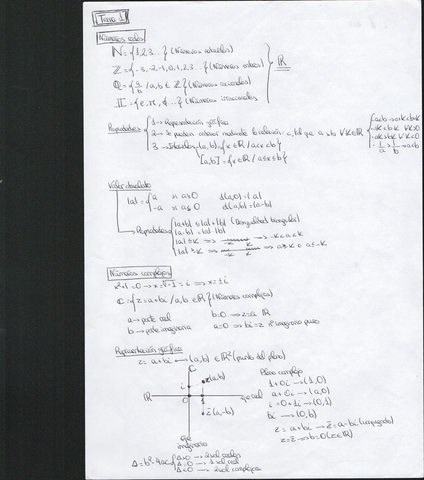 Tema 1
Números reales
ℕ = {1,2,3...} (Números naturales)
ℤ = {-3,-2,-1,0,1,2,3...} (Números enteros)
ℚ = {a/b / a,b ∈ ℤ} (Números racionales)
𝕀 = {e, π, ...} (Números irracionales)
ℝ
Propiedades
1 → Representación gráfica
2 → Se pueden ordenar mediante la relación:
3 → Intervalos → (a,b) = {x∈ℝ / a<x<b}
[a,b] = {x∈ℝ / a≤x≤b}
Valor absoluto
|a| = { a si a≥0 d(a,0)=|a|
-a si a≤0 d(a,b)=|a-b|
Propiedades
|a+b| ≤ |a|+|b| (Desigualdad triangular)
|a·b| = |a|·|b|
|a| ≤ K ⇒ -K K ⇒ -K≤a≤K
|a| ≥ K ⇒ -K K ⇒ a≥K o a≤-K
Números complejos
x²+1=0 → x=√-1 = i ⇒ x=±i
ℂ = {z=a+bi / a,b ∈ ℝ} (Números complejos)
a → parte real b=0 → z=a ℝ
b → parte imaginaria a=0 ⇒ bi=z nº imaginario puro
Representación gráfica
z = a+bi ↔ (a,b) ∈ ℝ² (punto del plano)
ℂ
i
z(a,b)
ℝ
0
1
eje real
z̄(a,-b)
eje
imaginario
Plano complejo
1+0i → (1,0)
a+0i → (a,0)
i = 0+1i → (0,1)
bi → (0,b)
z = a+bi → z̄ = a-bi (conjugado)
z=z̄ → b=0 (z∈ℝ)
Δ = b²-4ac
Δ>0 → 2 sol. reales
Δ=0 → 1 sol. real
Δ<0 → 2 sol. complejas